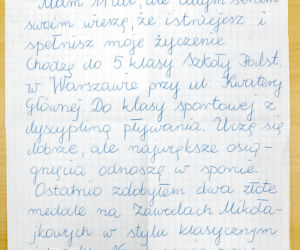 Mam lat, ale całym sercem
swoim wierzę, że istniejesz i
spełnisz moje życzenie.
Chodzę do 5 klasy Szkoły Podst.
w Warszawie przy ul. Kwatery
Głównej. Do klasy sportowej z
dyscypliną pływania. Uczę się
dobrze, ale największe osią-
gnięcia odnoszę w sporcie.
Ostatnio zdobyłem dwa złote
medale na Zawodach Mikoła-
jkowych w stylu klasycznym